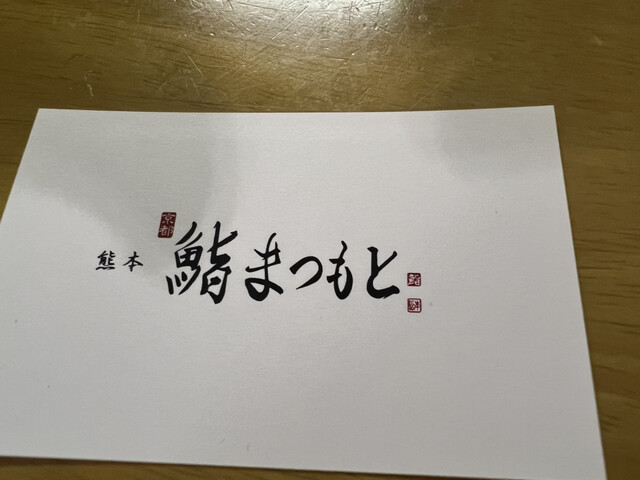 京都
熊本 鮨まつもと